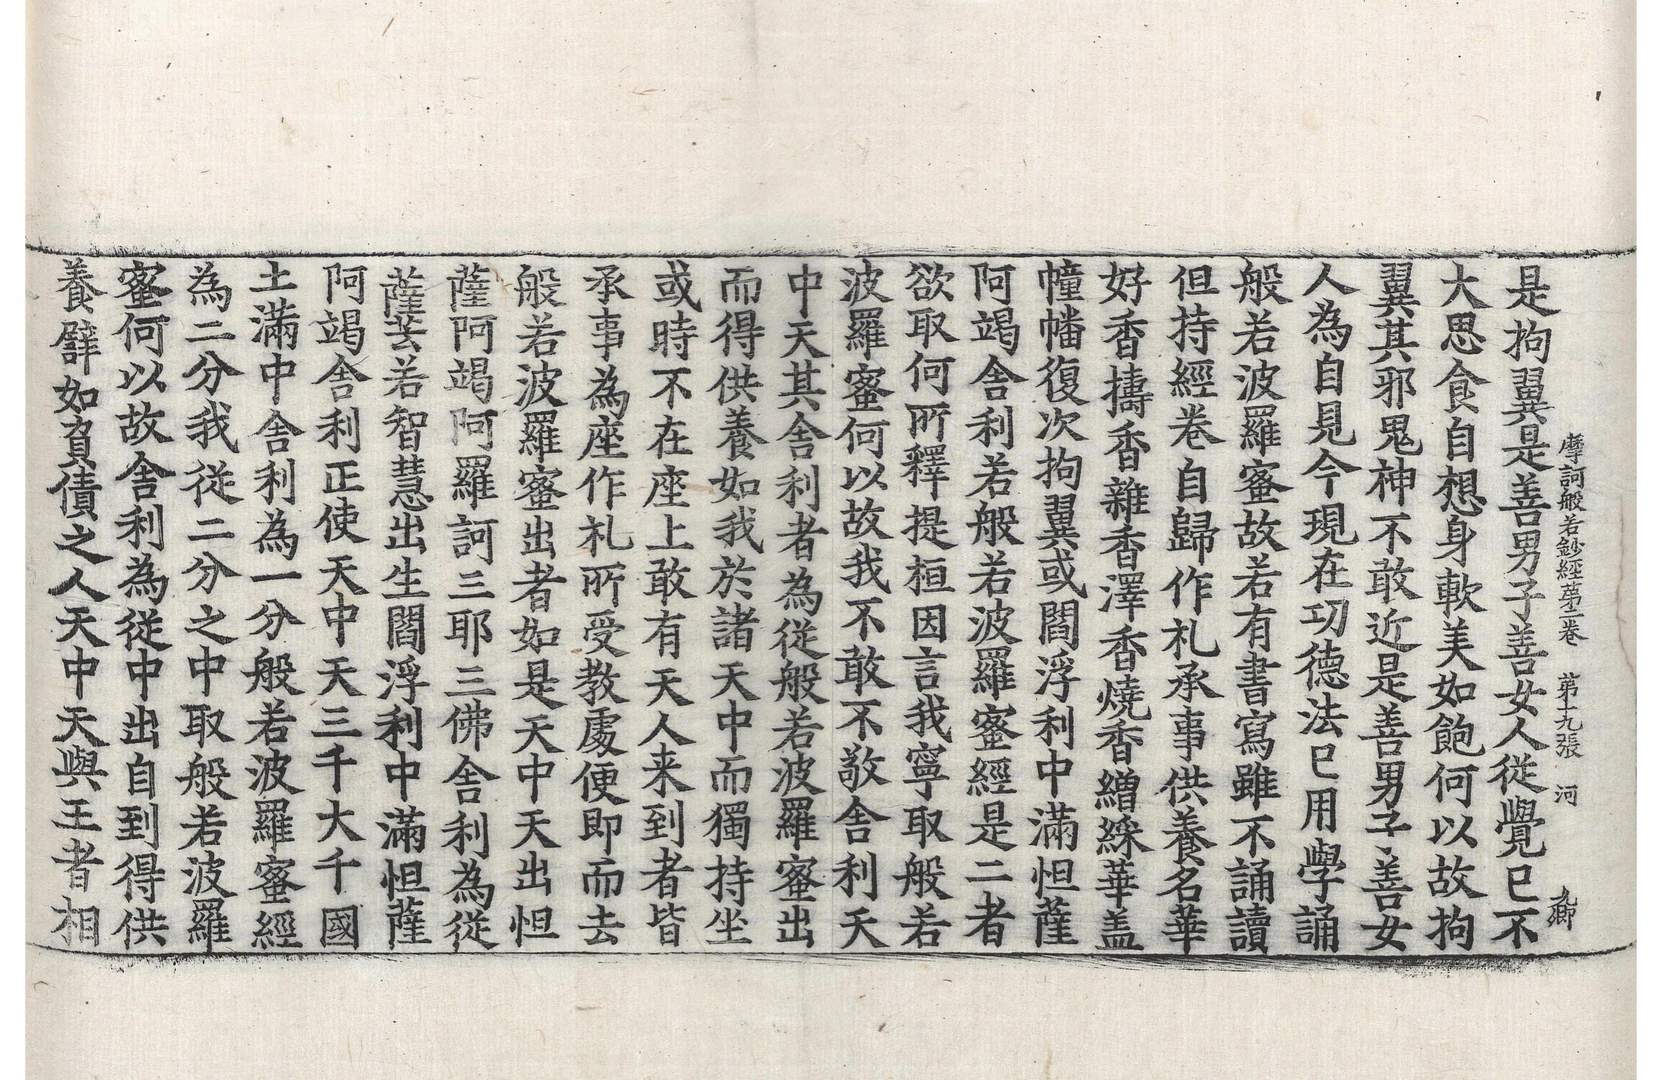 摩訶般若鈔經第二卷　第十九張　河　九卿
是拘翼是善男子善女人從覺已不
大思食自想身軟美如飽何以故拘
翼其邪鬼神不敢近是善男子善女
人為自見今現在功德法已用學誦
般若波羅蜜故若有書寫雖不誦讀
但持經卷自歸作札承事供養名華
好香擣香雜香澤香燒香繒綵華盖
幢幡復次拘翼或閻浮利中滿怛薩
阿竭舍利若般若波羅蜜經是二者
欲取何所釋提桓因言我寧取般若
波羅蜜何以故我不敢不敬舍利天
中天其舍利者為從般若波羅蜜出
而得供養如我於諸天中而獨持坐
或時不在座上敢有天人来到者皆
承事為座作札所受教處便即而去
般若波羅蜜出者如是天中天出怛
薩阿竭阿羅訶三耶三佛舍利為從
薩芸若智慧出生閻浮利中滿怛薩
阿竭舍利正使天中天三千大千國
土滿中舍利為一分般若波羅蜜經
為二分我從二分之中取般若波羅
蜜何以故舍利為從中出自到得供
養譬如負債之人天中天與王者相